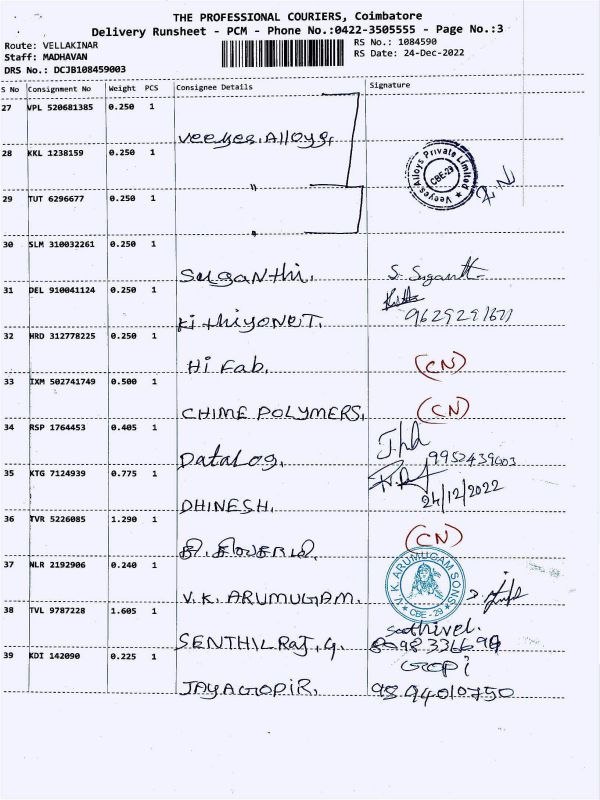 THE PROFESSIONAL COURIERS, Coimbatore
Delivery Runsheet - PCM - Phone No.:0422-3505555 - Page No.:3
Route: VELLAKINAR
RS No.: 1084590
Staff: MADHAVAN
RS Date: 24-Dec-2022
DRS No.: DCJB108459003
S No Consignment No Weight PCS Consignee Details Signature
27 VPL 520681385 0.250 1
Veeyes Alloys,
28 KKL 1238159 0.250 1
"
Veeyes Alloys Private Limited
CBE-29
29 TUT 6296677 0.250 1
"
30 SLM 310032261 0.250 1
SuganThi.
31 DEL 910041124 0.250 1
KithiyoneT.
32 HRD 312778225 0.250 1
Hi Fab.
(CN)
33 IXM 502741749 0.500 1
CHIME POLYMERS.
(CN)
34 RSP 1764453 0.405 1
DataLog.
35 KTG 7124939 0.775 1
DHINESH.
24/12/2022
36 TVR 5226085 1.290 1
(CN)
37 NLR 2192906 0.240 1
V.K. ARUMUGAM.
V.K. ARUMUGAM SONS
CBE - 29
38 TVL 9787228 1.605 1
SENTHILRAJ.G.
Sakthivel.
39 KDI 142090 0.225 1
JAYAGOPIR.
Gopi
9894010750